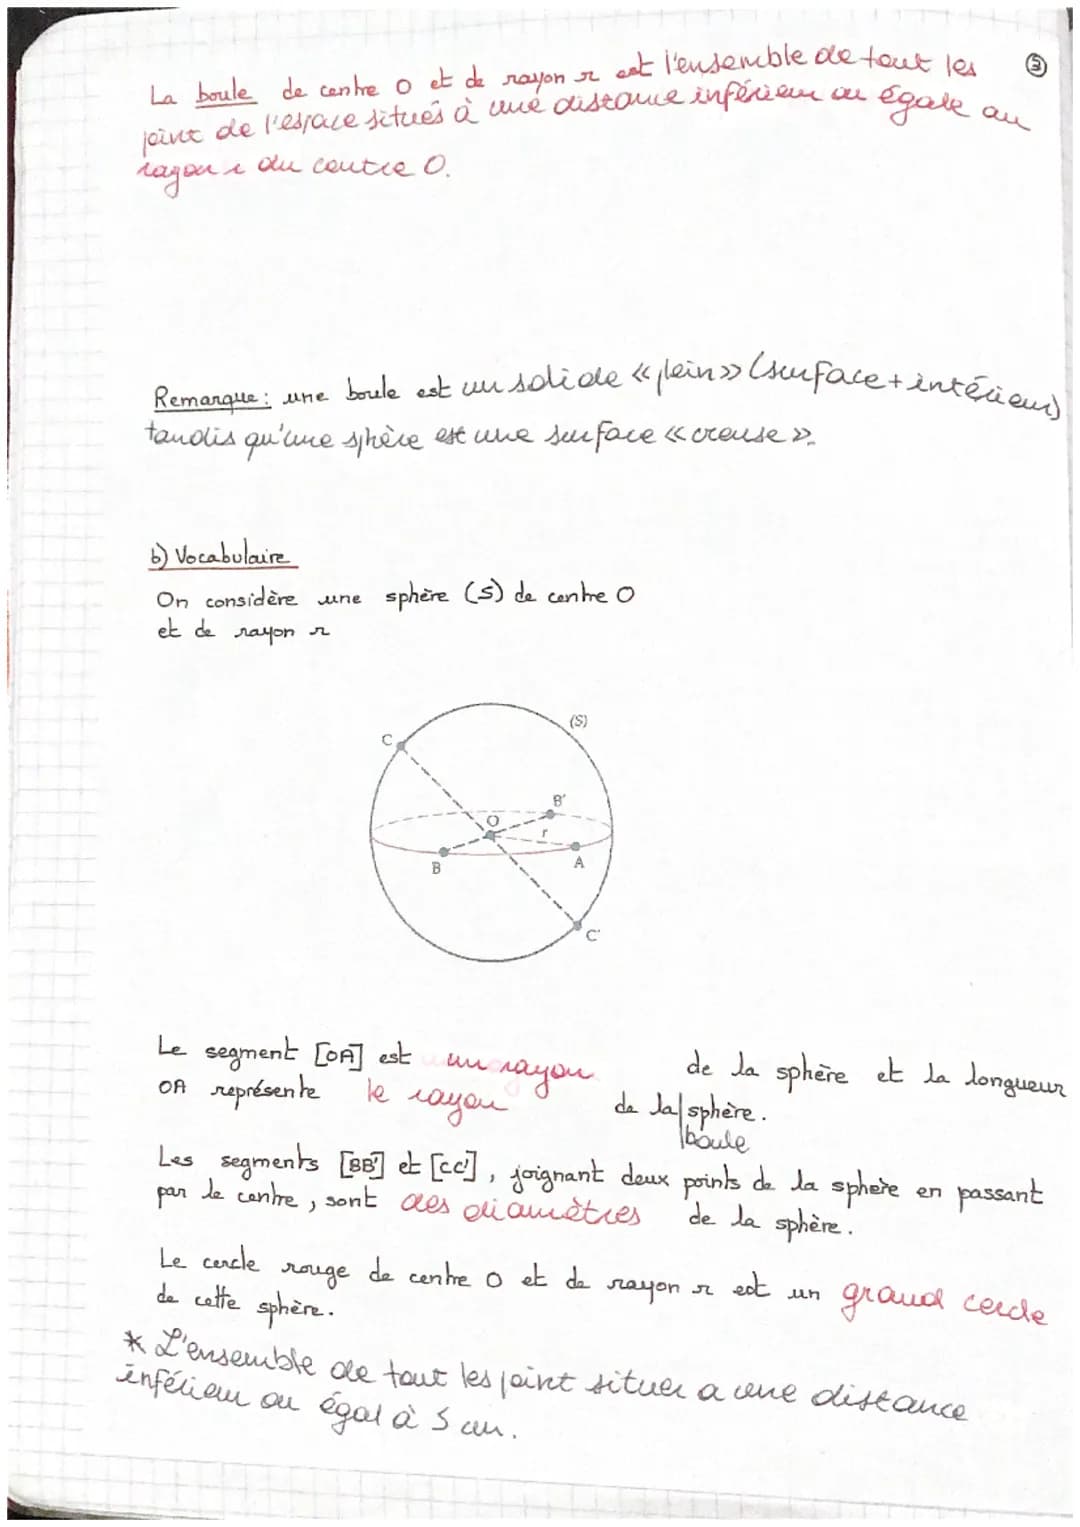 ③
La boule de centre O et de rayon r est l'ensemble de tout les
point de l'espace situés à une distance inférieur ou égale au
rayon r du centre O.
Remarque : une boule est un solide « plein » (surface + intérieur)
tandis qu'une sphère est une surface « creuse ».
b) Vocabulaire
On considère une sphère (S) de centre O
et de rayon r
(S)
C
B'
O
r
B
A
C'
Le segment [OA] est un rayon de la sphère et la longueur
OA représente le rayon de la sphère.
boule
Les segments [BB'] et [CC'], joignant deux points de la sphère en passant
par le centre, sont des diamètres de la sphère.
Le cercle rouge de centre O et de rayon r est un grand cercle
de cette sphère.
* L'ensemble de tout les point situer a une distance
inférieur ou égal à 5 cm.